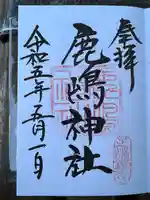 奉拝
鹿嶋神社
令和五年五月一日